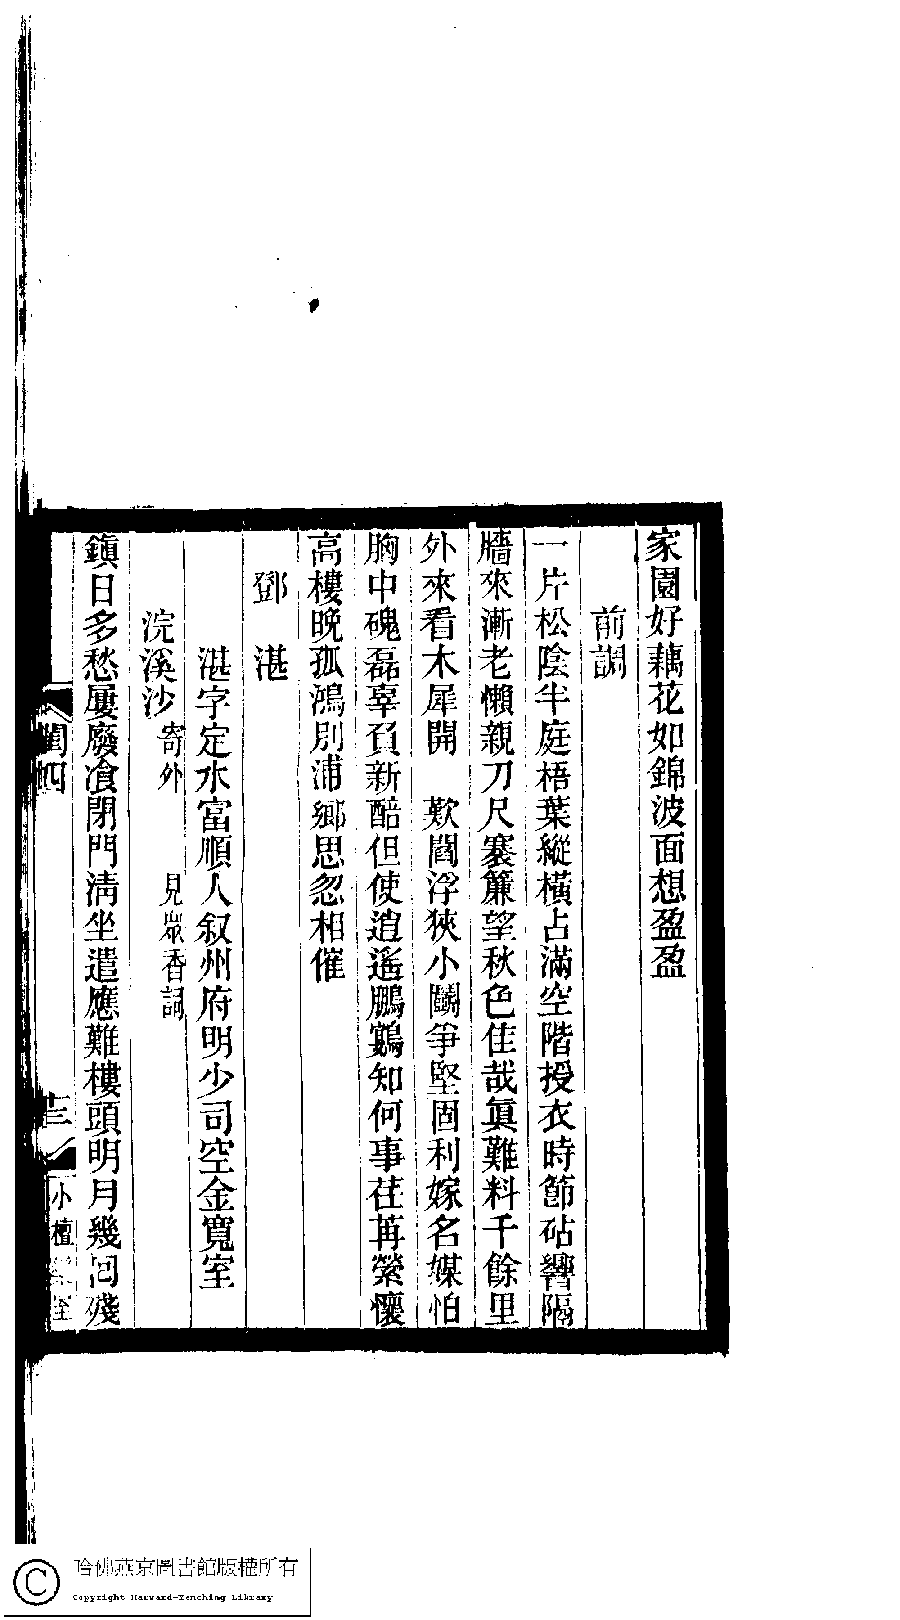 家園好藕花如錦波面想盈盈
前調
一片松陰半庭梧葉縱橫占滿空階授衣時節砧響隔
牆來漸老懶親刀尺褰簾望秋色佳哉眞難料千餘里
外來看木犀開　歎閻浮狹小鬭爭堅固利嫁名媒怕
胸中磈磊辜負新醅但使逍遙鵬鷃知何事荏苒縈懷
高樓晚孤鴻別浦鄉思忽相催
鄧　湛
湛字定水富順人叙州府明少司空金寬室
浣溪沙　寄外　見眾香詞
鎭日多愁屢廢飡閉門淸坐遣應難樓頭明月幾回殘
閨四
十三
小檀欒室
哈佛燕京圖書館版權所有
Copyright Harvard-Yenching Library